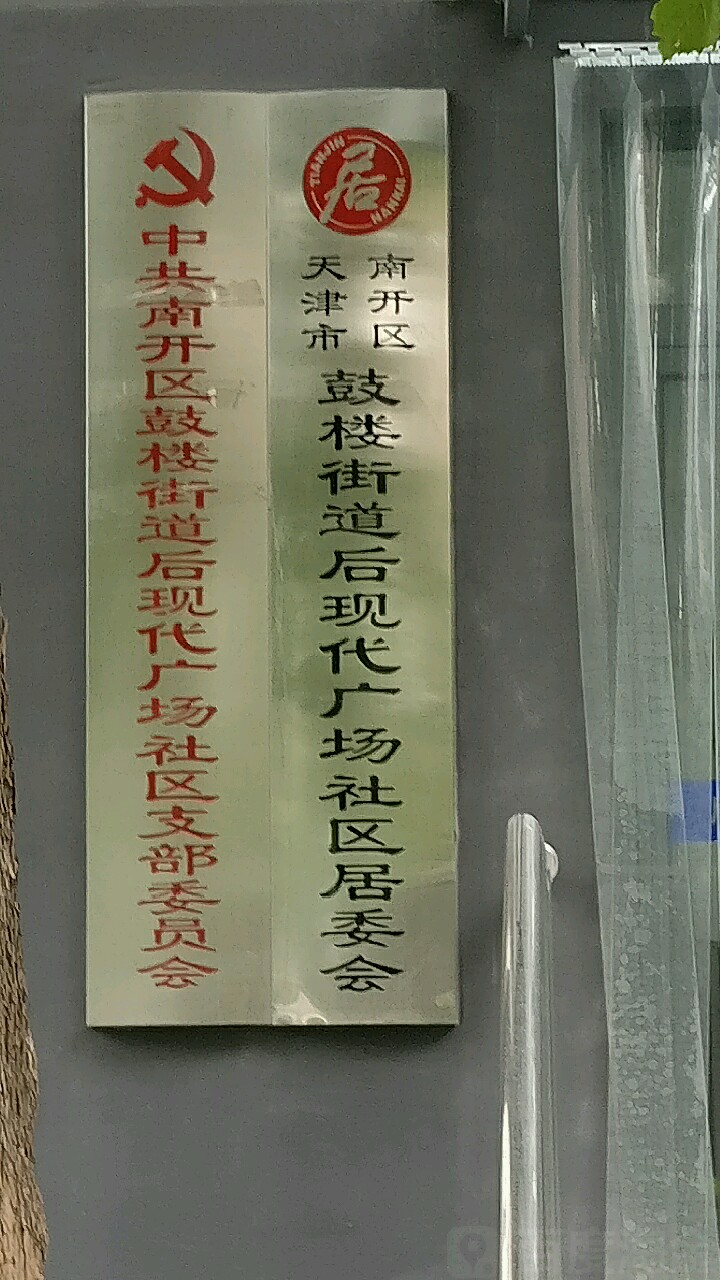 中共南开区鼓楼街道后现代广场社区支部委员会
TIANJIN
居
NANKAI
天津市
南开区
鼓楼街道后现代广场社区居委会